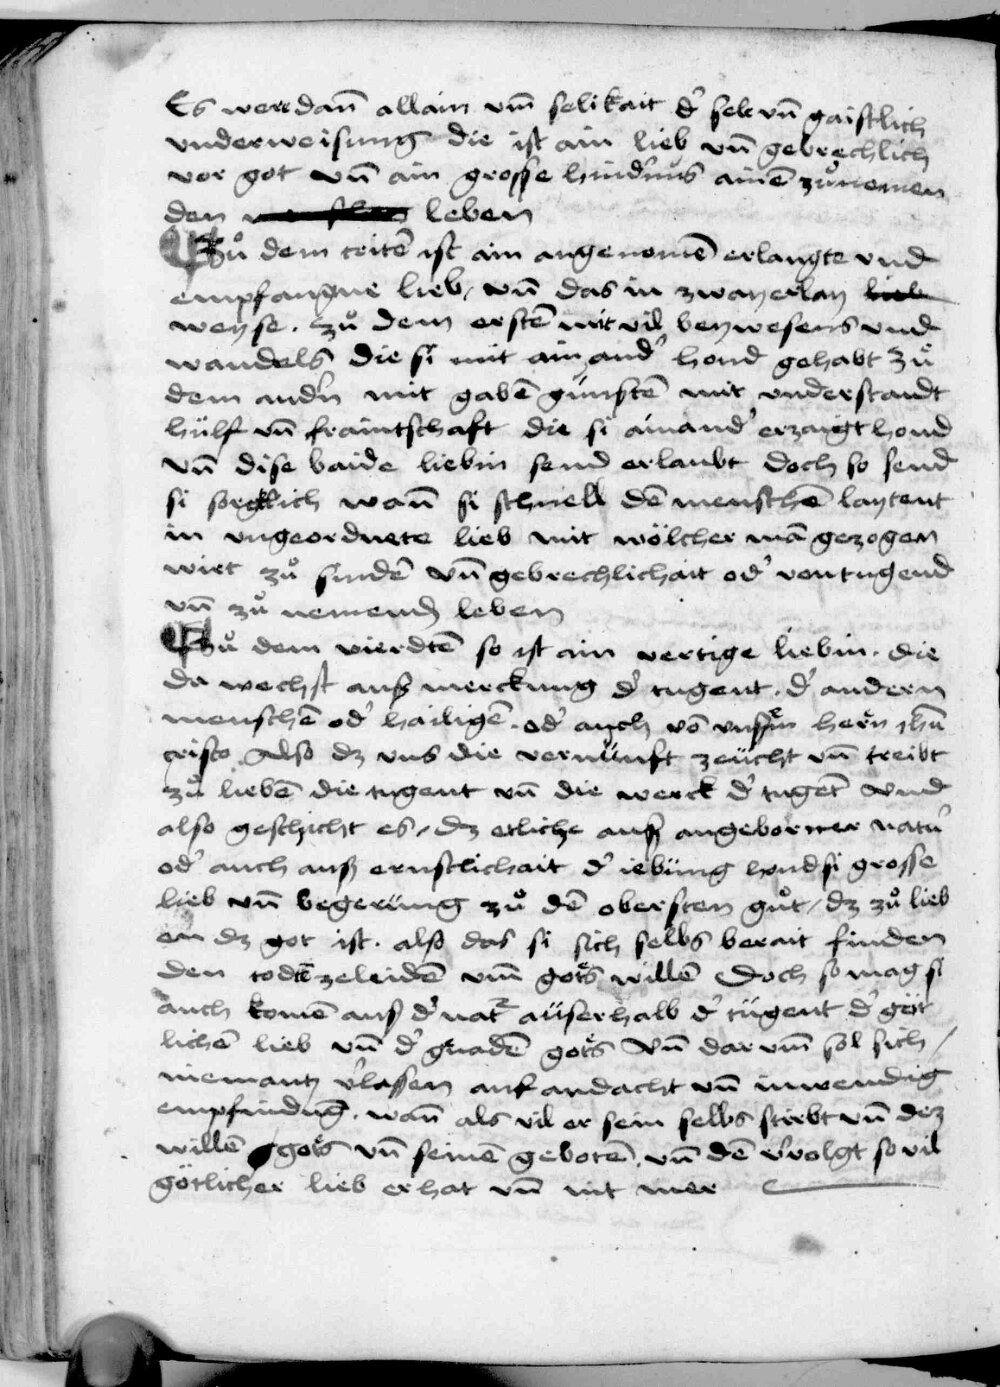 Es were dañ allain vm̄ selikait d' sele vñ gaistlich
vnderweisung die ist ain lieb vñ gebrechlich
vor got vñ ain grosse hindnüs ainē zůnemen
den leben
Zů dem tritē ist ain angenomē erlangte vnd
empfangne lieb, vñ das in zwayerlay
weyse. zů dem erstē mit vil beywesens vnd
wandels die si mit ain and' hond gehabt zů
dem andn mit gabē günstē mit vnderstandt
hülf vñ fraintschaft die si ainand' erzaigt hond
vñ dise baide liebin send erlaubt doch so send
si sorgklich wañ si schnell dē menschē laytent
in vngeordnete lieb mit wölcher mā gezogen
wirt zů sündē vñ gebrechlichait od' von tugend
vñ zů nemend leben
Zů dem vierdtē so ist ain vertige liebin. die
da wechst auß merckung d' tugent. d' andern
menschē od' hailigē. od' auch vō vnserm hern ihū
cristo. Also dz vns die vernünft zeücht vñ treibt
zů liebē die tugent vñ die werck d' tugēt Vnd
also geschicht es, dz etliche auß angeborner natur
od' auch auß ernstlichait d' iebüng hond si grosse
lieb vñ begerüng zů dē obersten gůt, dz zů lieb
en dz got ist. also das si sich selbs berait finden
den todtē zeleidē vm̄ gots willē Doch so mag si
auch komē auß d' natr aüserhalb d' tügent d' göt
lichē lieb vñ d' gnadē gots Vñ dar vm̄ sol sich
niemantz v'lassen auf andacht vñ inwendig
empfindūg. wañ als vil er sein selbs stirbt vñ dez
willē gots vñ seinē gebotē. vñ dē v'volgt so vil
götlicher lieb er hat vñ nit mer